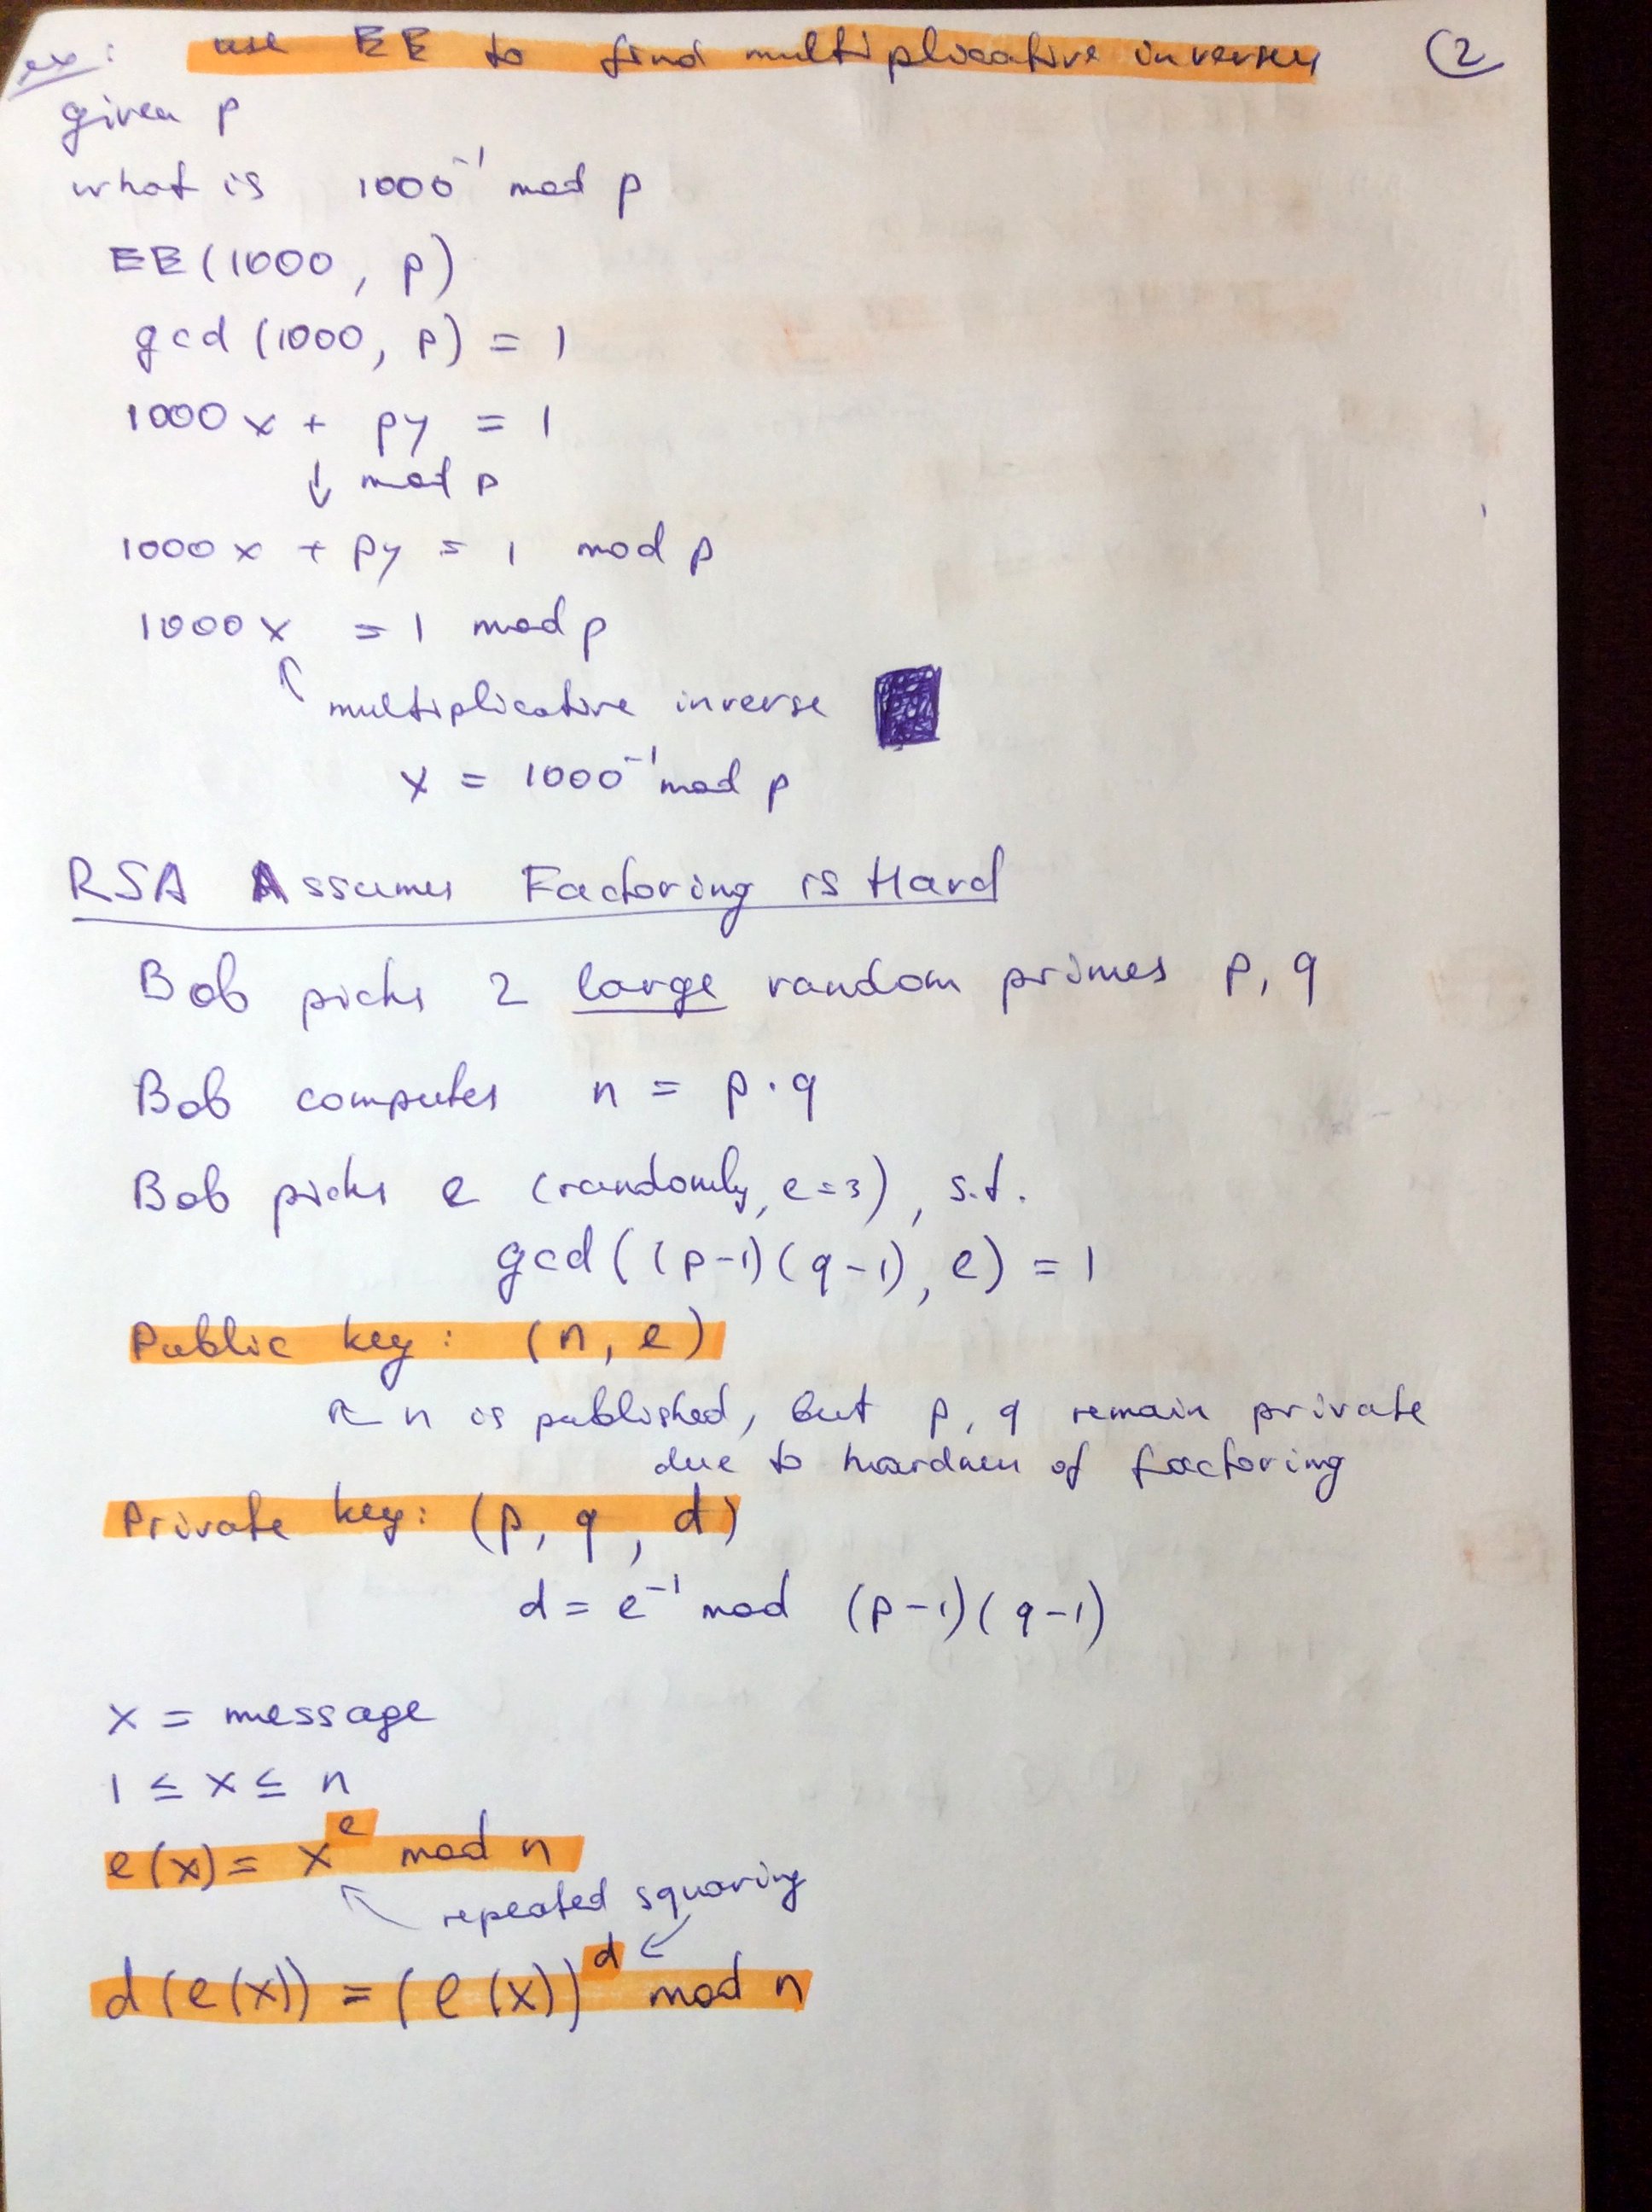 ex: use EE to find multiplicative inverses (2
given p
what is 1000⁻¹ mod p
EE(1000, p)
gcd (1000, p) = 1
1000x + py = 1
↓ mod p
1000x + py = 1 mod p
1000x = 1 mod p
multiplicative inverse
x = 1000⁻¹ mod p
RSA Assumes Factoring is Hard
Bob picks 2 large random primes p, q
Bob computes n = p · q
Bob picks e (randomly, e=3), s.t.
gcd((p-1)(q-1), e) = 1
Public key: (n, e)
n is published, but p, q remain private
due to hardness of factoring
Private key: (p, q, d)
d = e⁻¹ mod (p-1)(q-1)
x = message
1 ≤ x ≤ n
e(x) = xᵉ mod n
repeated squaring
d(e(x)) = (e(x))ᵈ mod n